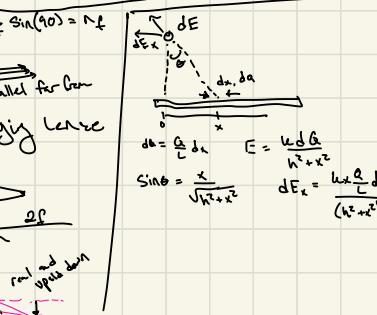 Sin(90) = nf
parallel far from
lence
2f
real and
upside down
dE
dEx
θ
dx, dq
0
x
dQ = Q/L dx
E = kdQ/h²+x²
Sinθ = x/√h²+x²
dEx = kx Q/L d
(h²+x²